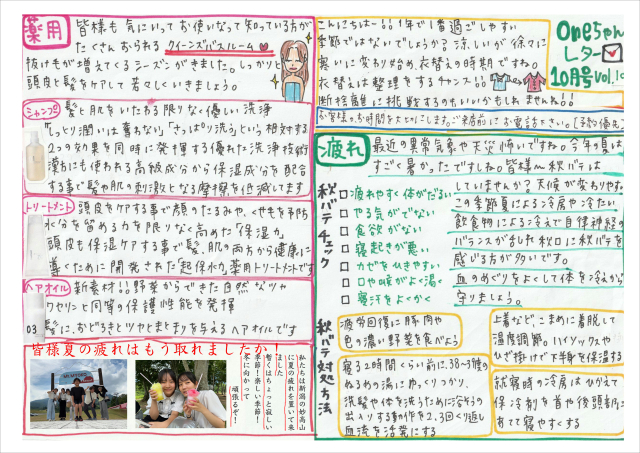 薬用
皆様も気にいってお使いなって知っている方が
たくさんおられるクイーンズバスルーム
抜け毛が増えてくるシーズンがきました。しっかりと
頭皮と髪をケアして若々しくいきましょう。
シャンプー
髪と肌をいたわる限りなく優しい洗浄
"しっとり潤いは奪わない""さっぱり洗う"という相対する
2つの効果を同時に発揮する優れた洗浄技術
漢方にも使われる高級成分から保湿成分を配合
する事で髪や肌の刺激となる摩擦を低減してます
トリートメント
頭皮をケアする事で顔のたるみや、くせ毛を予防
水分を留める力を限りなく高めた"保湿力"
頭皮も保湿ケアする事で髪、肌の両方から健康に
導くために開発された超保水力薬用トリートメントです
ヘアオイル
新素材!!野菜からできた自然なツヤ
ワセリンと同等の保護性能を発揮
03
髪に、おどろきとツヤとまとまりを与えるヘアオイルです
皆様夏の疲れはもう取れましたか!
私たちは新潟の妙高山
に夏の疲れを置いて来
ました
暫くはちょっと寂しい
季節!楽しい季節!
冬に向かって
頑張るぞ!
こんにちは〜!!1年で1番過ごしやすい
季節ではないでしょうか?涼しいが徐々に
寒いに変わり始め、衣替えの時期ですね。
衣替えは整理をするチャンス!!
断捨離に挑戦するのもいいかもしれませんね!!
oneちゃん
レター
10月号 Vol.10
お客様のお時間を大切にします。ご来店前にお電話下さい。【予約優先】
疲れ
最近の異常気象や天災怖いですね。今年の夏は
すごく暑かったですしね。皆様〜秋バテは
していませんか?天候が変わりやすい
この季節夏による冷房や冷たい
飲食物による冷えで自律神経の
バランスが乱れ秋口に秋バテを
感じる方が多いです。
血のめぐりをよくして体を冷えから
守りましょう。
秋バテチェック
□疲れやすく体がだるい
□やる気がでない
□食欲がない
□寝起きが悪い
□カゼをひきやすい
□口や喉がよく渇く
□寝汗をよくかく
秋バテ対処方法
疲労回復に豚肉や
色の濃い野菜を食べよう
寝る2時間くらい前に、38〜39度の
ぬるめの湯にゆっくりつかり、
洗髪や体を洗うために浴そうの
出入りする動作を2、3回くり返し
血流を活発にする
上着など、こまめに着脱して
温度調節。ハイソックスや
ひざ掛けで下半身を保温する
就寝時の冷房はひかえて
保冷剤を首や後頭部に
あてて寝やすくする